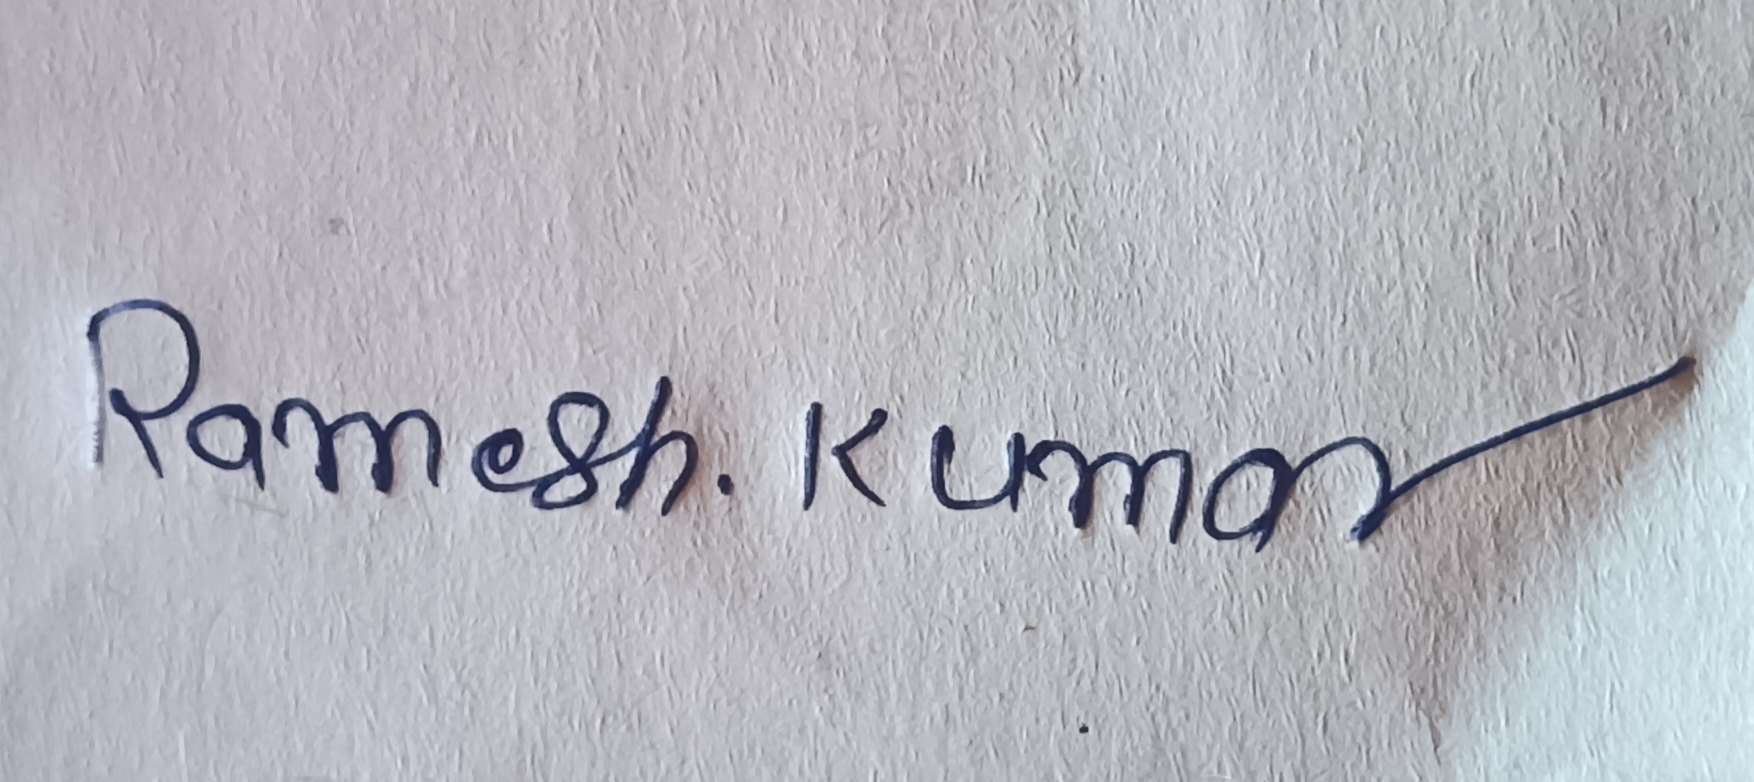 Ramesh. Kumar